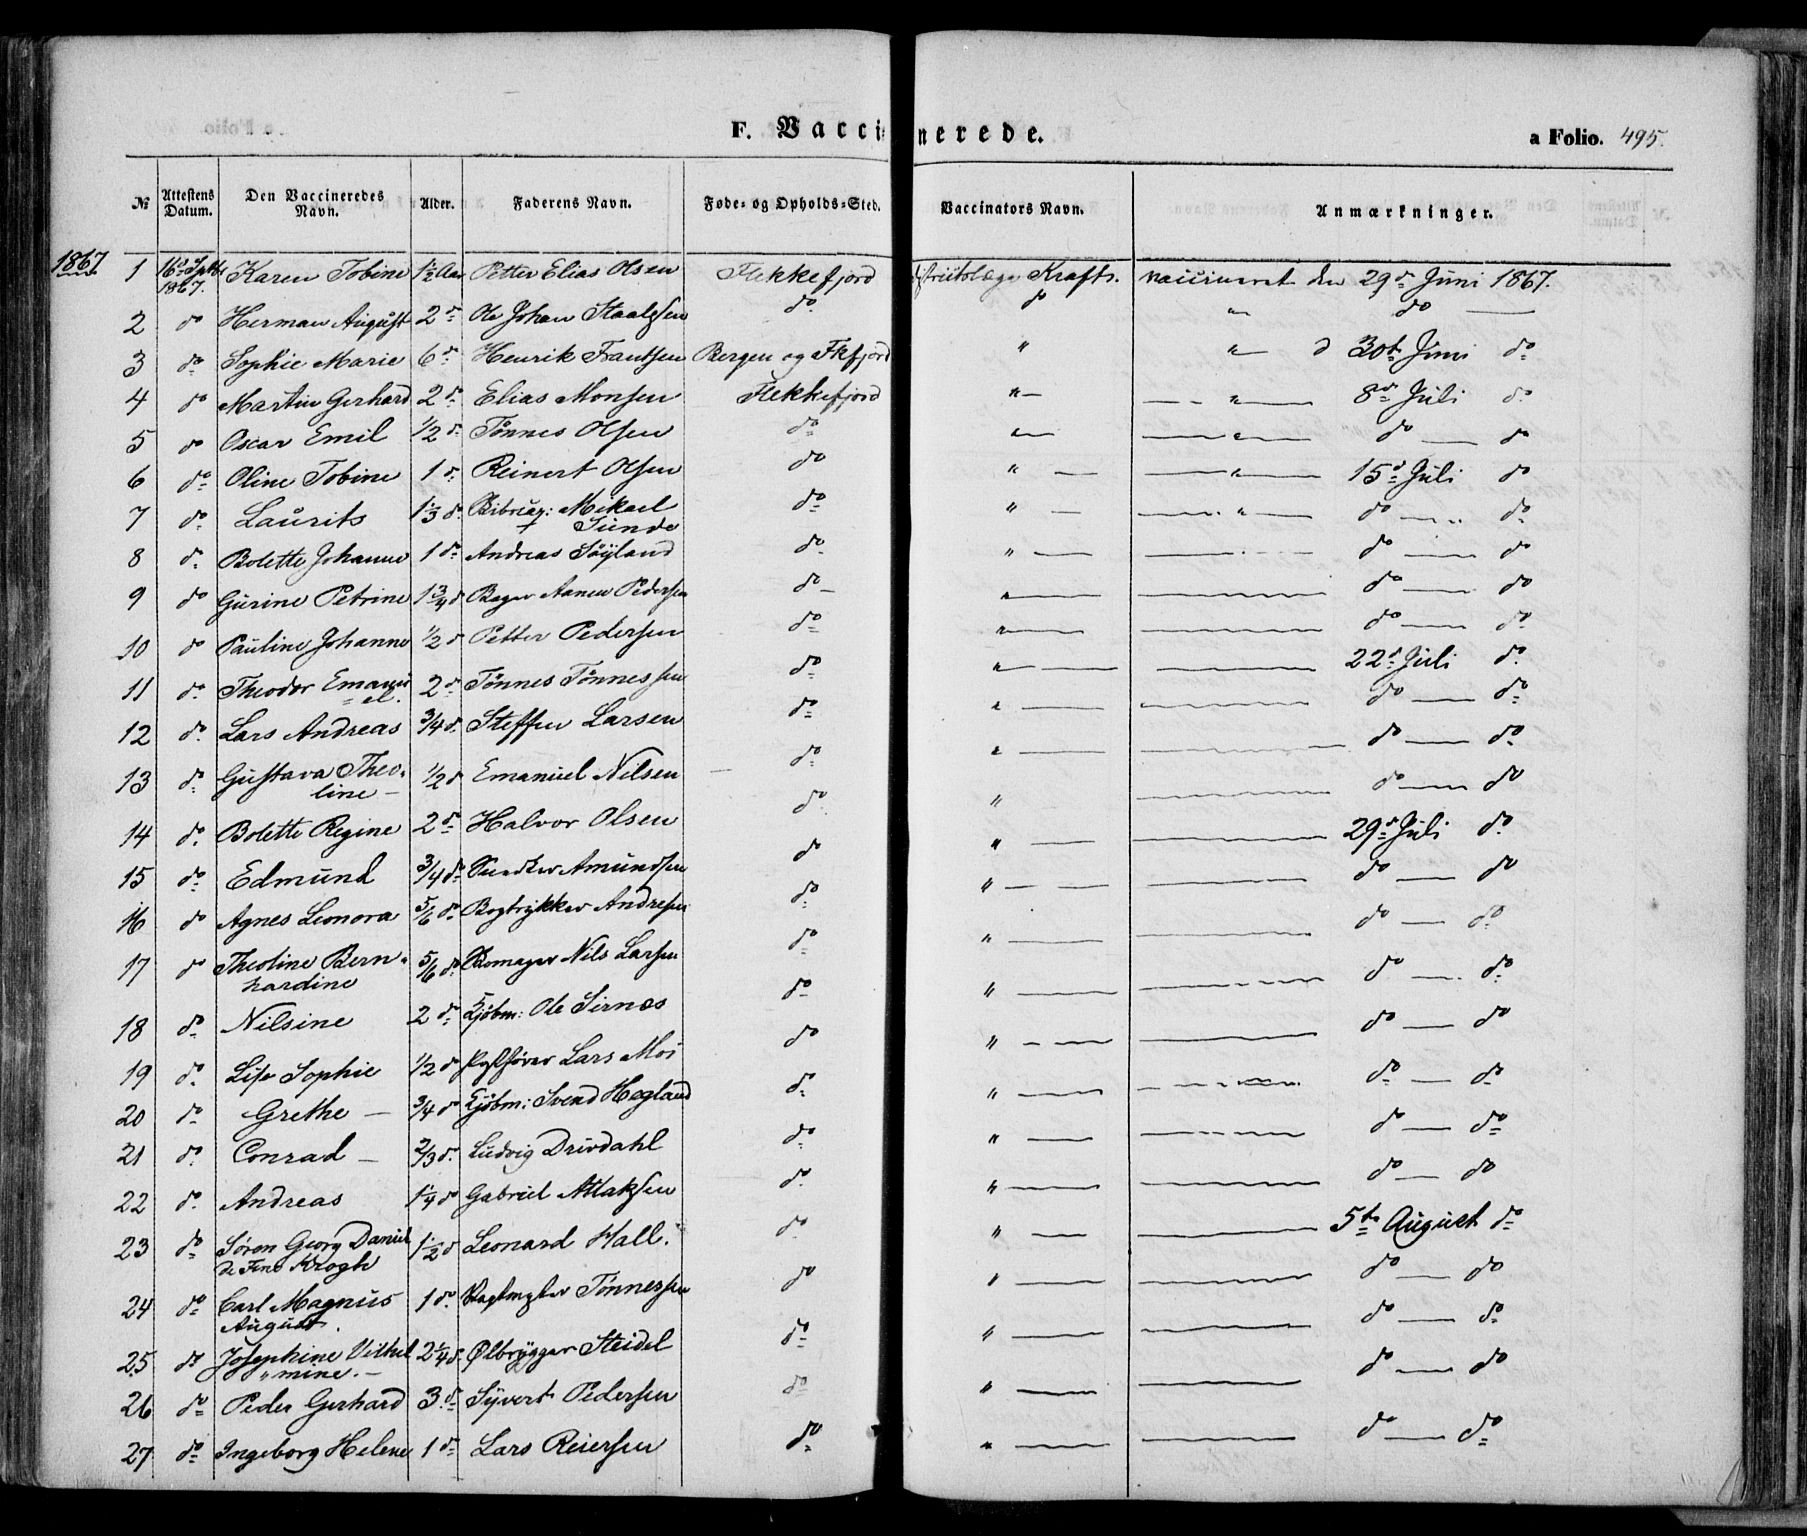 F. Vaccinerede. a Folio. 495.
№ Attestens Datum. Den Vaccineredes Navn. Alder. Faderens Navn. Føde- og Opholds-Sted. Vaccinators Navn. Anmærkninger.
1867
1 16de Septbr 1867. Karen Tobine 1½ Aar Petter Elias Olsen Flekkefjord Distriktslæge Kraft. vaccineret den 29de Juni 1867.
2 do Herman August 2 do Ole Johan Staalesen do. do " do
3 do Sophie Marie 6 do Henrik Frantsen Bergen og Fkfjord " " d 30te Juni do
4 do Martin Gerhard 2 do Elias Monsen Flekkefjord " " 8de Juli do
5 do Oscar Emil ½ do Tønnes Olsen do " " do do
6 do Oline Tobine 1 do Reinert Olsen do " " 15de Juli do
7 do Laurits 1⅓ do Mikael Sunde do " " do do
8 do Bolette Johanne 1 do Andreas Søyland do " do do
9 do Gurine Petrine 1¾ do Bager Aanen Pedersen do " do do
10 do Pauline Johanne ½ do Petter Pedersen do " do do
11 do Theodor Emanuel. 2 do Tønnes Tønnessen do " 22de Juli do
12 do Lars Andreas ¾ do Steffen Larsen do " do do
13 do Gustava Theoline ½ do Emanuel Nilsen do " do do
14 do Bolette Regine 2 do Halvor Olsen do " do do
15 do Edmund ¾ do Amundsen do " 29de Juli do
16 do Agnes Leonora ⅚ do Bogtrykker Andresen do " do do
17 do Theoline Bernhardine ⅚ do Nils Larsen do " do do
18 do Nilsine 2 do Kjøbm: Ole Sirnes do " do do
19 do Lise Sophie ½ do Lars Moi do " do do
20 do Grethe ¾ do Kjøbm: Svend Hegland do " do do
21 do Conrad ⅔ do Ludvig Drivdahl do " do do
22 do Andreas 1¼ do Gabriel Atlaksen do " do do
23 do Søren Georg Daniel de Fine Krogh 1½ do Leonard Hall. do " 5te August do
24 do Carl Magnus August. 1 do Tønnessen do " do do
25 do Josephine Vilhelmine. 2¼ do Ølbrygger Steidel do " do do
26 do Peder Gerhard 3 do Syvert Pedersen do " do do
27 do Ingeborg Helene 1 do Lars Reiersen do " do do